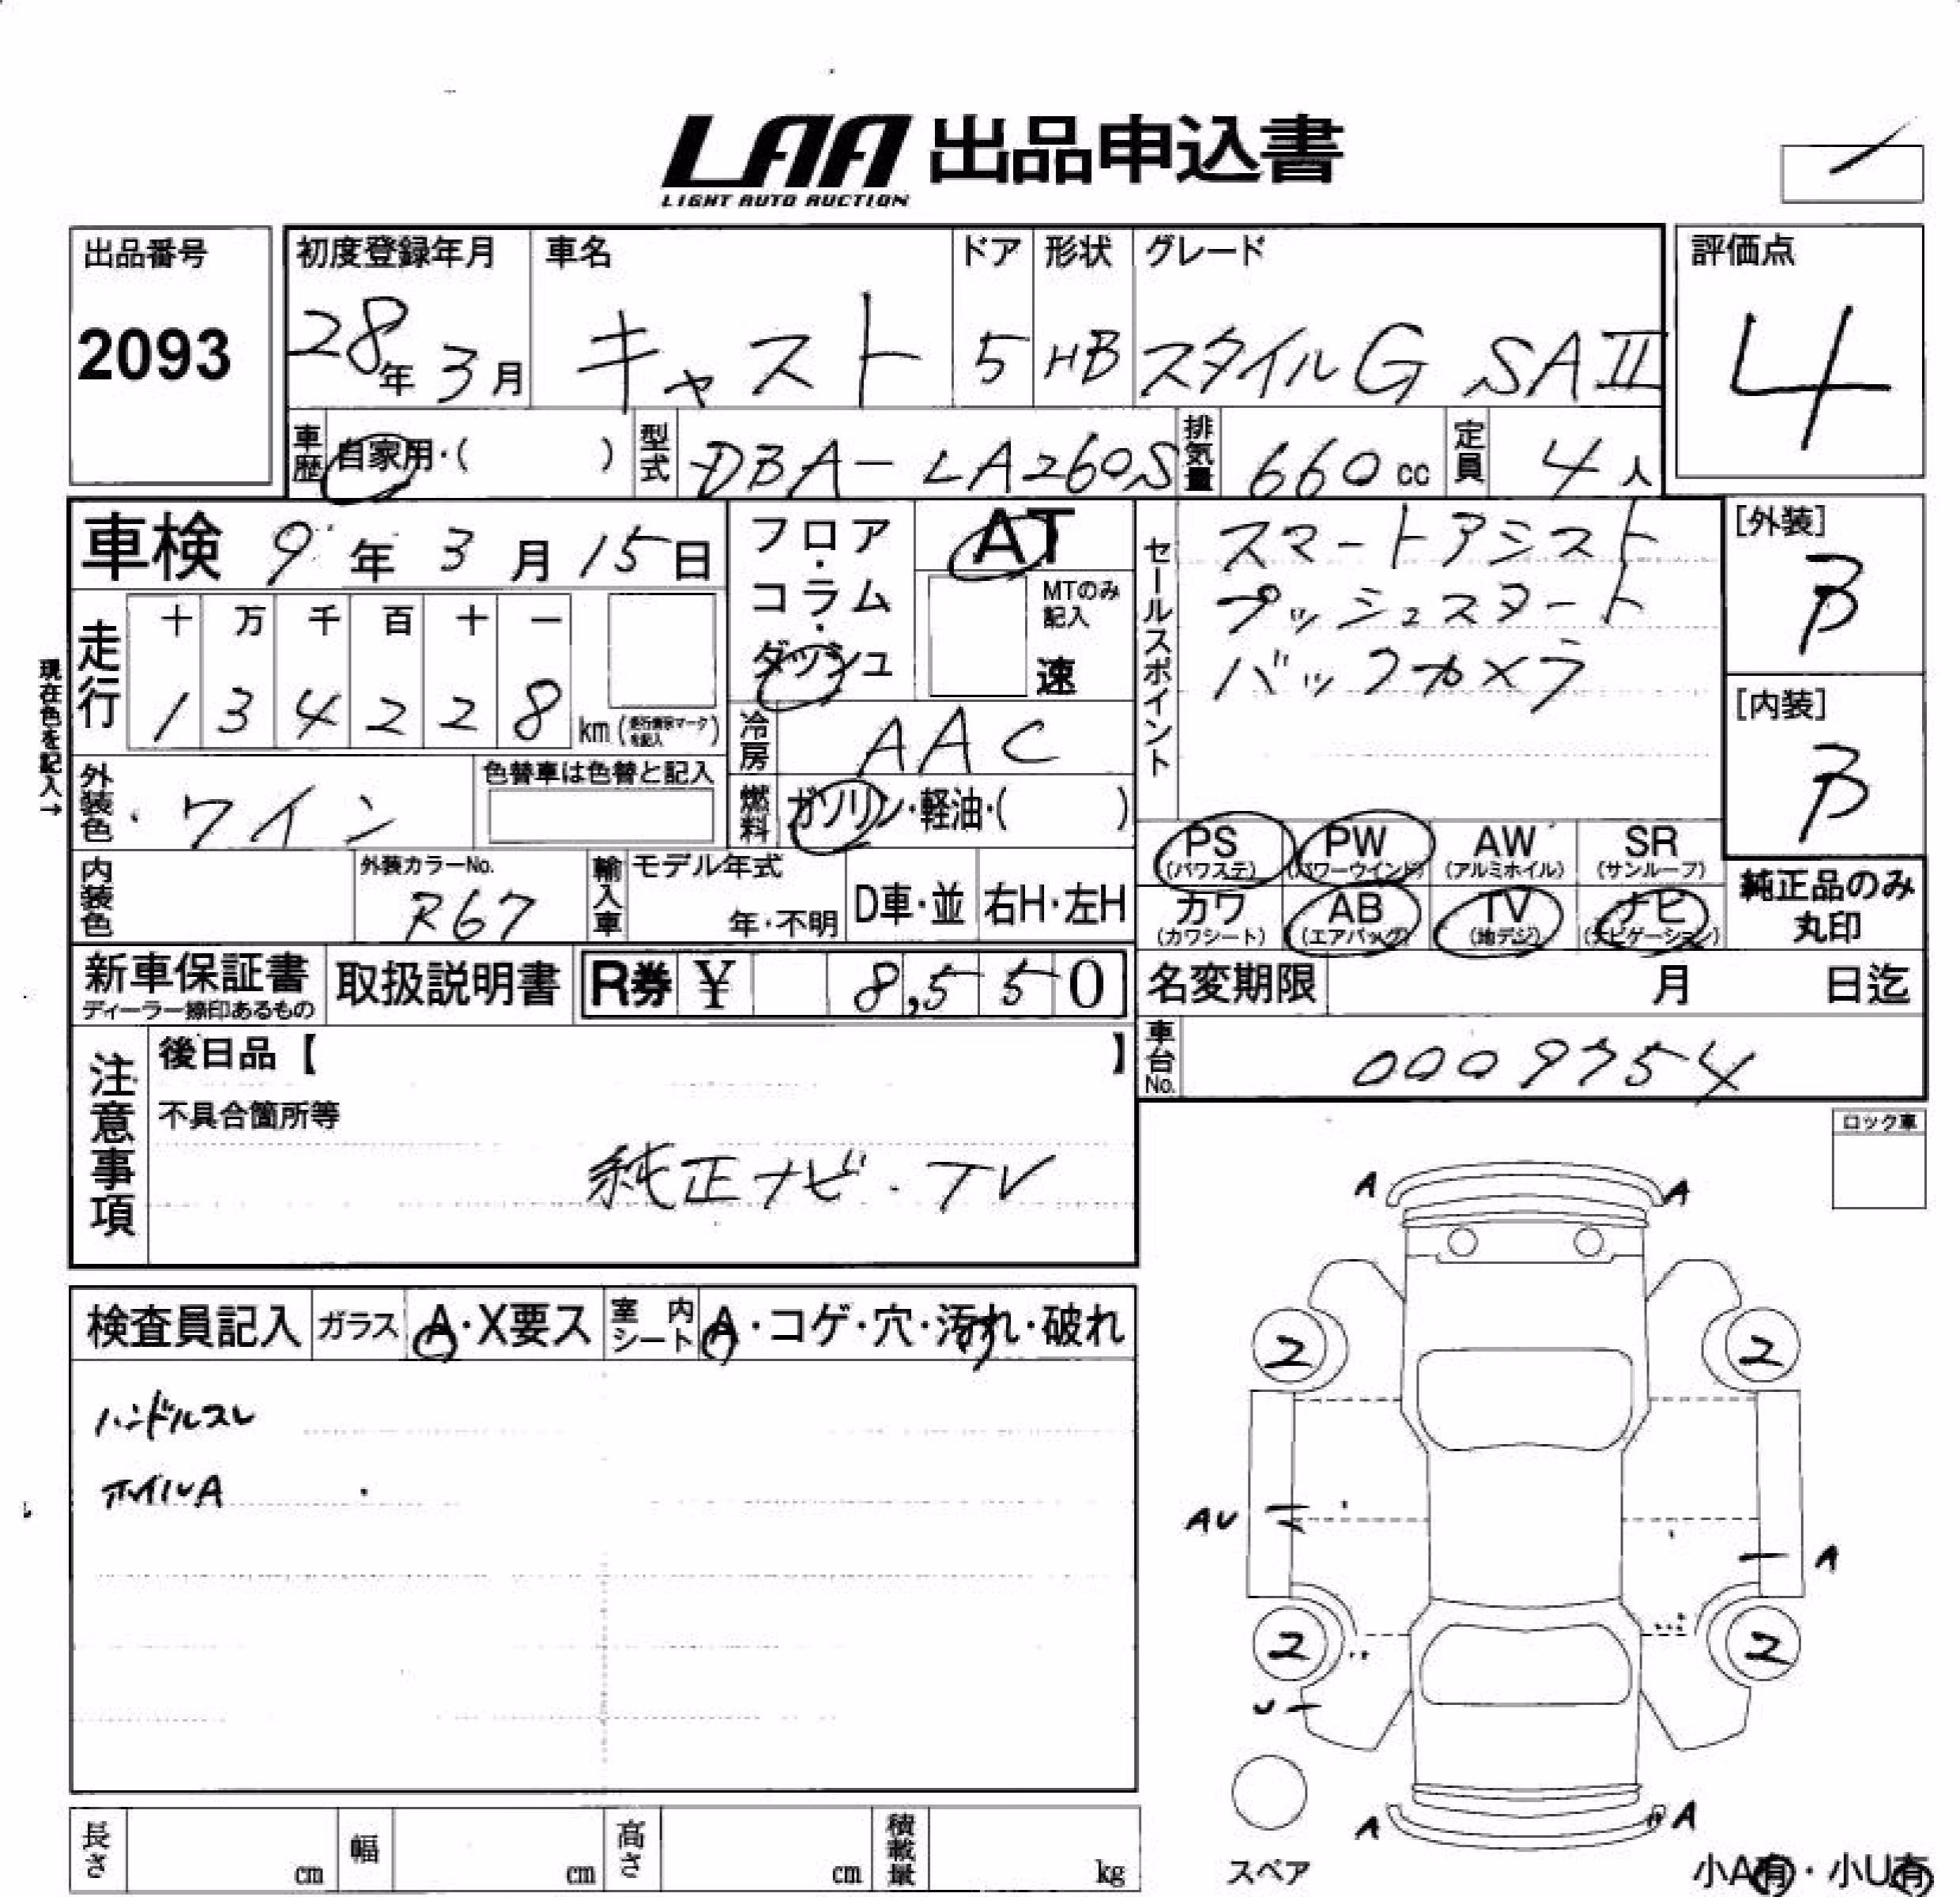 LAA 出品申込書
LIGHT AUTO AUCTION
出品番号
2093
初度登録年月
28年 3月
車名
キャスト
ドア
5
形状
HB
グレード
スタイルG SAⅡ
評価点
4
車歴
自家用・( )
型式
DBA-LA260S
排気量
660 cc
定員
4人
車検 9年 3月 15日
フロア・コラム・ダッシュ
AT
MTのみ記入
速
セールスポイント
スマートアシスト
プッシュスタート
バックカメラ
[外装]
B
[内装]
B
現在色を記入→
走行
十 万 千 百 十 一
1 3 4 2 2 8 km
冷房
AAC
燃料
ガソリン・軽油・( )
外装色
ワイン
色替車は色替と記入
内装色
外装カラーNo.
R67
輸入車
モデル年式
年・不明
D車・並
右H・左H
PS
(パワステ)
PW
(パワーウインド)
AW
(アルミホイル)
SR
(サンルーフ)
カワ
(カワシート)
AB
(エアバッグ)
TV
(地デジ)
ナビ
(ナビゲーション)
純正品のみ
丸印
新車保証書
取扱説明書
R券 ¥ 8,550
名変期限 月 日迄
車台No.
0009754
注意事項
後日品【 】
不具合箇所等
純正ナビ・TV
ロック車
検査員記入
ガラス
A・X要ス
室内シート
A・コゲ・穴・汚れ・破れ
ハンドルスレ
ホイルA
A A
2 2
AU
A
2 2
U
A A
スペア
小A有・小U有
長さ cm
幅 cm
高さ cm
積載量 kg